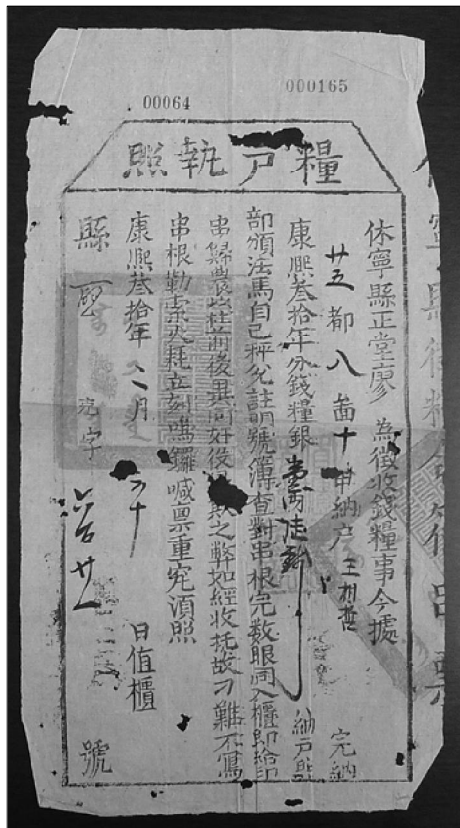 000165
00064
糧戶執照
休寧縣正堂廖 為徵收錢糧事今據
廿五都八啚十甲納户王相哲 完納
康熙叁拾年分錢糧銀壹兩陸錢 納戶照
部頒法馬自己秤兌註明號簿查對串根完數眼同入櫃即給印
串歸農以杜前後異同奸役之弊如經收托故刁難不寫
串根勒索火耗立刻鳴鑼喊禀重究湏照
康熙叁拾年 八月 二十 日值櫃
縣 字 號